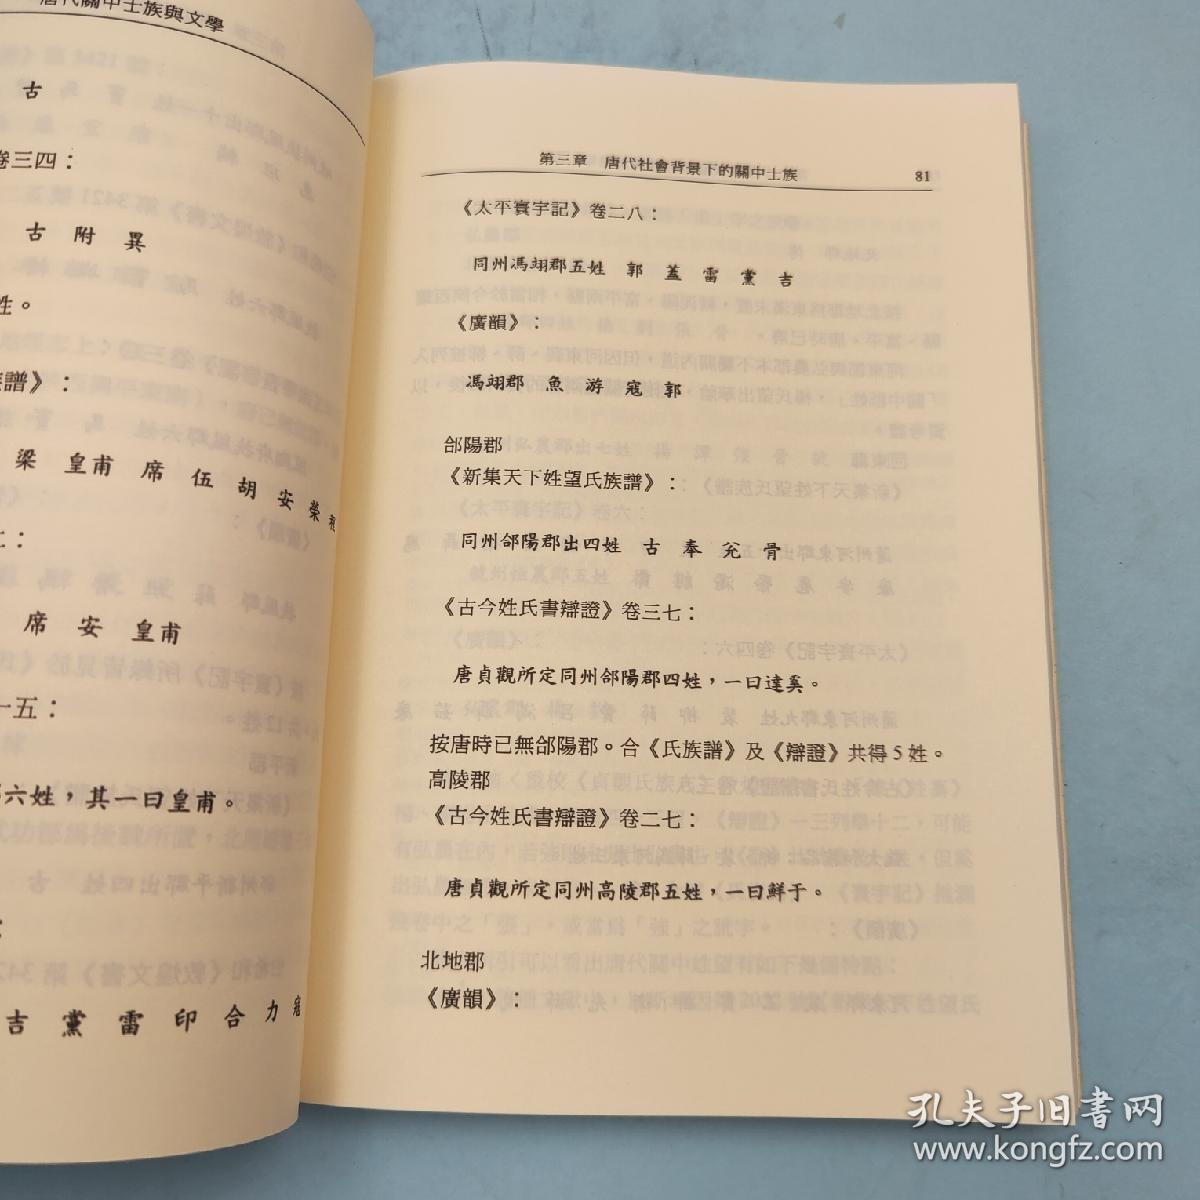 唐代關中士族與文學
古
卷三四：
古 附 異
姓。
族譜》：
梁 皇甫 席 伍 胡 安 榮 程
上：
席 安 皇甫
一五：
郡六姓，其一曰皇甫。
吉 黨 雷 印 合 力 寇
第三章 唐代社會背景下的關中士族 81
《太平寰宇記》卷二八：
同州馮翊郡五姓 郭 蓋 雷 黨 吉
《廣韻》：
馮翊郡 魚 游 寇 郭
郃陽郡
《新集天下姓望氏族譜》：
同州郃陽郡出四姓 古 奉 兊 骨
《古今姓氏書辯證》卷三七：
唐貞觀所定同州郃陽郡四姓，一曰達奚。
按唐時已無郃陽郡。合《氏族譜》及《辯證》共得5姓。
高陵郡
《古今姓氏書辯證》卷二七：
唐貞觀所定同州高陵郡五姓，一曰鮮于。
北地郡
《廣韻》：
孔夫子旧书网
www.kongfz.com